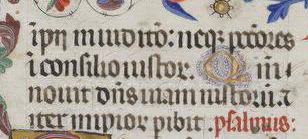 ipii in iudito: neqz pctores
i consilio iustor. Qm
nouit dns uiam iustorū. ⁊
iter impior pibit. psalmus.